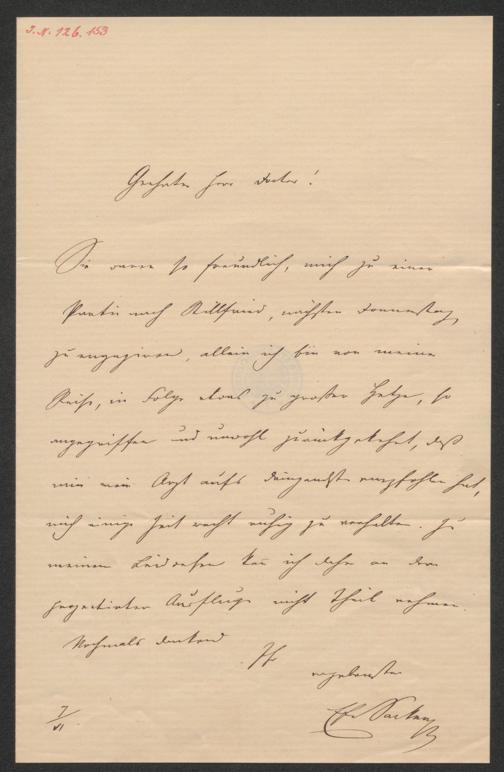 J. N. 126.153
Geehrter Herr Doctor!
Sie waren so freundlich, mich zu einer
Partie nach Stillfried, nächsten Donnerstag,
zu engagiren, allein ich bin von meiner
Reise, in Folge etwas zu großer Hetze, so
angegriffen und unwohl zurückgekehrt, daß
mir mein Arzt aufs dringendste empfohlen hat,
mich einige Zeit recht ruhig zu verhalten. Zu
meinem Leidwesen kann ich daher an dem
projectirten Ausfluge nicht Theil nehmen.
Nochmals dankend
Ihr
ergebenster
Sacken
7/VI